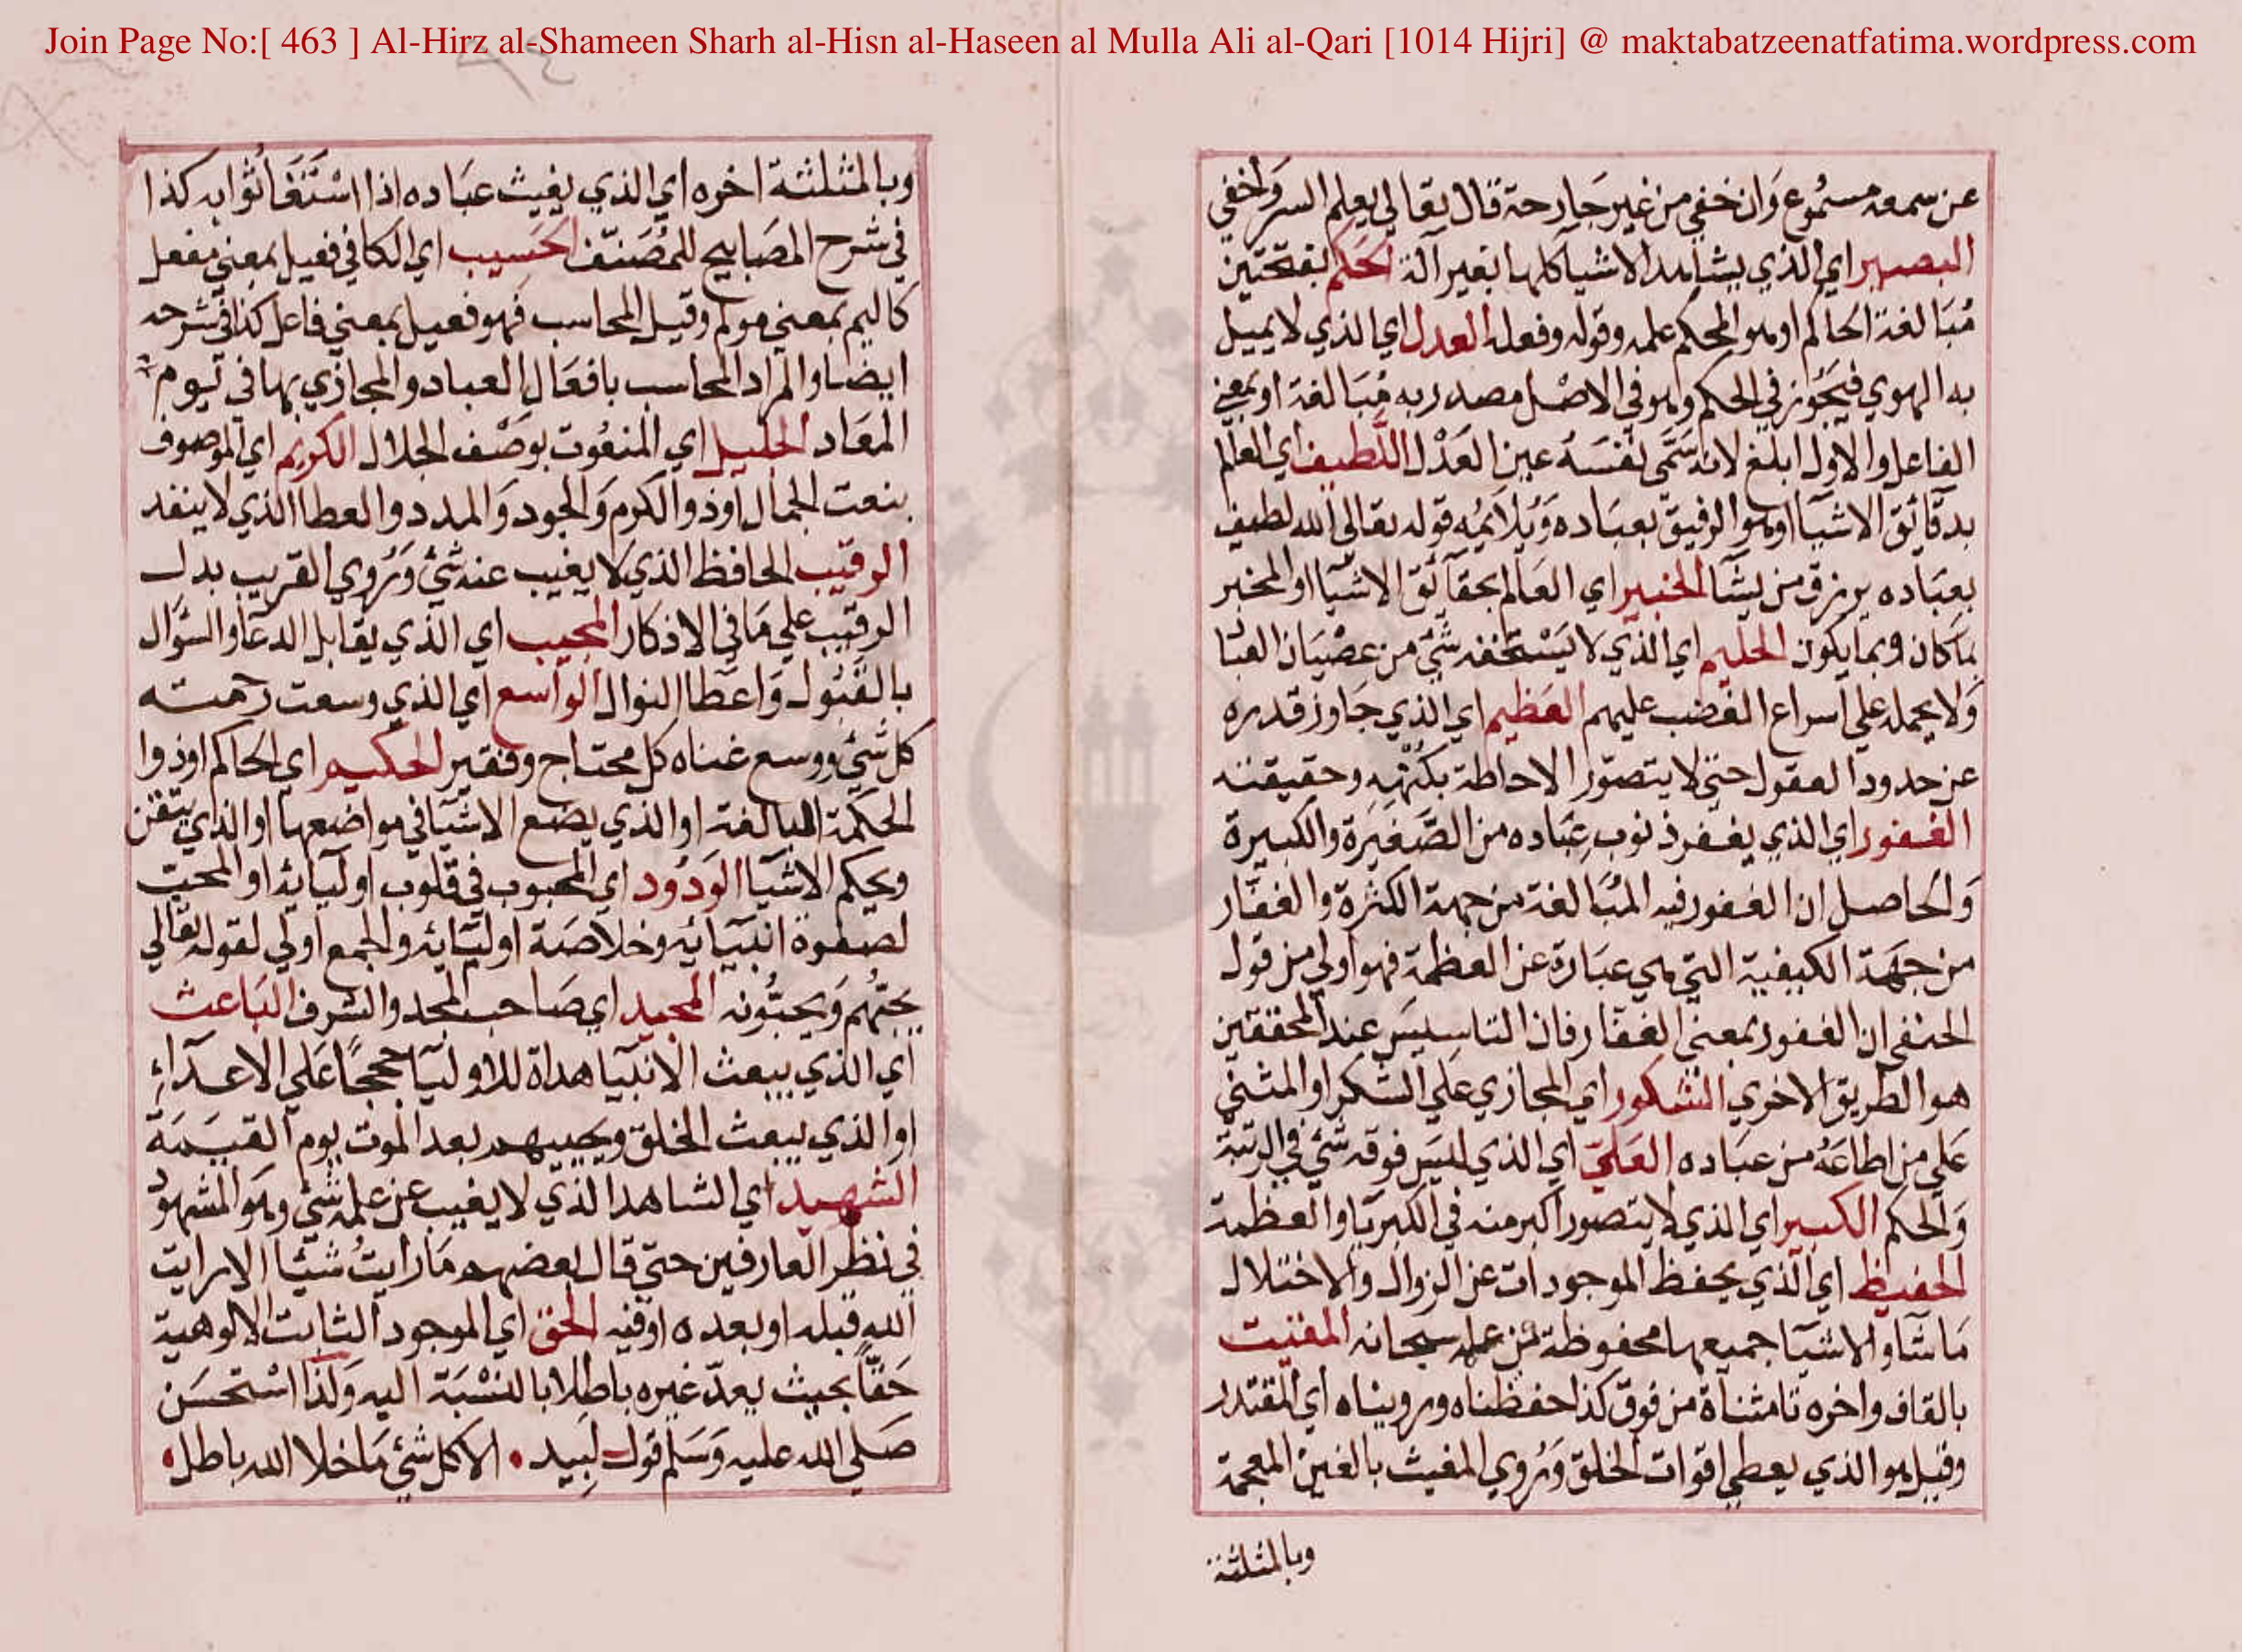 Join Page No:[ 463 ] Al-Hirz al-Shameen Sharh al-Hisn al-Haseen al Mulla Ali al-Qari [1014 Hijri] @ maktabatzeenatfatima.wordpress.com
عن سمعه مسموع وان خفي من غير جارحة قال تعالي يعلم السر واخفي
البصير اي الذي يشاهد الاشيا كلها بغير آلة الحكم بفتحتين
مبالغة الحاكم او هو المحكم علمه وقوله وفعله العدل اي الذي لا يميل
به الهوي فيجوز في الحكم وهو في الاصل مصدر به مبالغة او بمعني
الفاعل والاول ابلغ لانه سمي نفسه عين العدل اللطيف اي العالم
بدقائق الاشيا او هو الرفيق بعباده ويلايمه قوله تعالي الله لطيف
بعباده يرزق من يشا الخبير اي العالم بحقائق الاشيا او المخبر
بما كان وبما يكون الحليم اي الذي لا يستخفه شئ من عصيان العبا
ولا يحمله علي اسراع الغضب عليهم العظيم اي الذي جاوز قدره
عن حدود العقول حتي لا يتصور الاحاطة بكنهه وحقيقته
الغفور اي الذي يغفر ذنوب عباده من الصغيرة والكبيرة
والحاصل ان الغفور فيه المبالغة من جهة الكثرة والغفار
من جهة الكيفية التي هي عبارة عن العظمة فهو اولي من قول
الحنفي ان الغفور بمعني الغفار فان التاسيس عند المحققين
هو الطريق الاخري الشكور اي المجازي علي الشكر او المثني
علي من اطاعه من عباده العلي اي الذي ليس فوقه شئ في الرتبة
والحكم الكبير اي الذي لا يتصور اكبر منه في الكبريا والعظمة
الحفيظ اي الذي يحفظ الموجودات عن الزوال والاختلال
ما شا والاشيا جميعها محفوظة سبحانه المقيت
بالقاف واخره تا مثناة من فوق كذا حفظناه ورويناه اي المقتدر
وقيل هو الذي يعطي اقوات الخلق وروي المغيث بالغين المعجمة
وبالمثلثة
وبالمثلثة اخره اي الذي يغيث عباده اذا استغاثوا به كذا
في شرح المصابيح للمصنف الحسيب اي الكافي فعيل بمعني مفعل
كاليم بمعني مولم وقيل المحاسب فهو فعيل بمعني فاعل كذا في شرحه
ايضا والمراد المحاسب بافعال العباد والمجازي بها في يوم
المعاد الجليل اي المنعوت بوصف الجلال الكريم اي الموصوف
بنعت الجمال او ذو الكرم والجود والمدد والعطا الذي لا ينفد
الرقيب الحافظ الذي لا يغيب عنه شئ وروي القريب بدل
الرقيب علي ما في الاذكار المجيب اي الذي يقابل الدعا والسؤال
بالقبول واعطا النوال الواسع اي الذي وسعت رحمته
كل شئ ووسع غناه كل محتاج وفقير الحكيم اي الحاكم او ذوا
الحكمة البالغة او الذي يضع الاشيا في مواضعها او الذي يتقن
ويحكم الاشيا الودود اي المحبوب في قلوب اوليائه او المحب
لصفوة انبيائه وخلاصة اوليائه والجمع اولي لقوله تعالي
يحبهم ويحبونه المجيد اي صاحب المجد والشرف الباعث
اي الذي يبعث الانبيا هداة للاوليا حججا علي الاعداء
او الذي يبعث الخلق ويحييهم بعد الموت يوم القيمة
الشهيد اي الشاهد الذي لا يغيب عن علمه شئ وهو المشهود
في نظر العارفين حتي قال بعضهم ما رايت شيئا الا رايت
الله قبله او بعده او فيه الحق اي الموجود الثابت الالوهية
حقا بحيث يعد غيره باطلا بالنسبة اليه ولذا استحسن
صلي الله عليه وسلم قول لبيد • الا كل شئ ما خلا الله باطل •